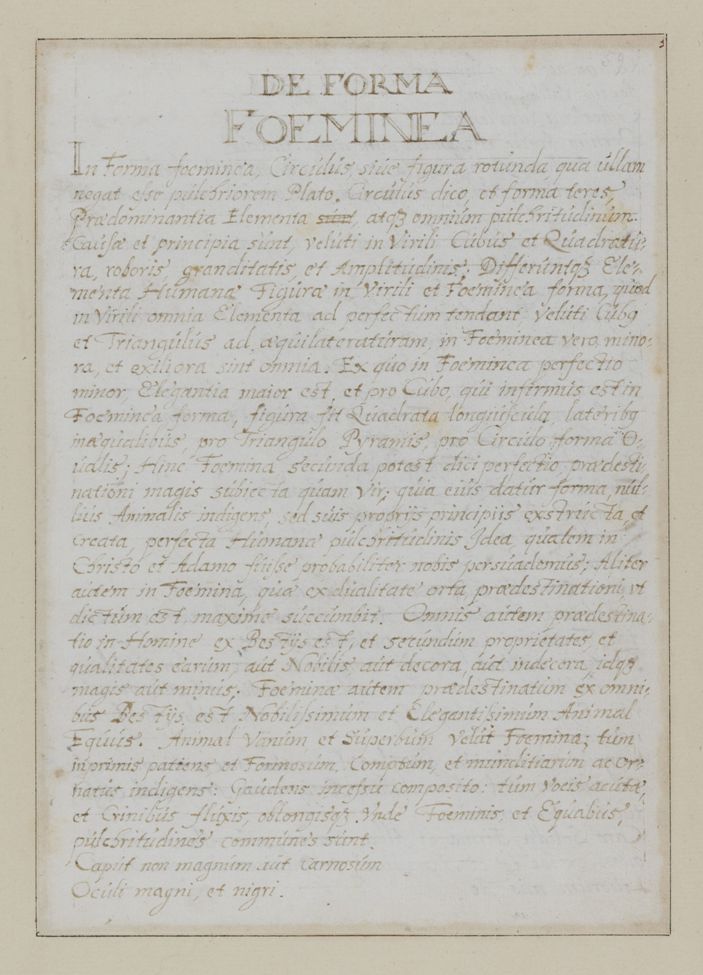 5
DE FORMA
FOEMINEA
In Forma foeminea, Circulus, siue figura rotunda qua ullam
negat esse pulchriorem Plato. Circulus dico, et forma teres,
Prædominantia Elementa sunt, atqꝫ omnium pulchritudinum
Causæ et principia sunt, veluti in Virili Cubus et Quadratu-
ra, roboris granditatis, et Amplitudinis. Differuntqꝫ Ele-
menta Humanæ Figuræ in Virili et Foeminea forma, quod
in Virili omnia Elementa ad perfectum tendant, veluti Cubꝰ
et Triangulus ad æquilateraturam, in Foeminea vero mino-
ra, et exiliora sint omnia. Ex quo in Foeminea perfectio
minor, Elegantia maior est, et pro Cubo, qui infirmus est in
Foeminea forma, figura fit Quadrata longuiscula, lateribꝰ
inæqualibus, pro Triangulo Pyramis, pro Circulo forma O-
ualis; Hinc Foemina secunda potest dici perfectio, prædesti-
nationi magis subiecta quam vir; quia eius datur forma, nul-
lius Animalis indigens, sed suis proprijs principijs exstructa, et
Creata, perfecta Humanæ pulchritudinis Idea, qualem in
Christo et Adamo fuisse probabiliter nobis persuademus; Aliter
autem in Foemina, quæ ex dualitate orta prædestinationi, vt
dictum est, maxime succumbit. Omnis autem prædestina-
tio in Homine ex Bestijs est, et secundum proprietates, et
qualitates earum, aut Nobilis, aut decora, aut indecora, idqꝫ
magis aut minus. Foeminæ autem prædestinatum ex omni-
bus Bestijs est Nobilissimum et Elegantissimum Animal
Equus. Animal Vanum et Superbum velut Foemina; tum
inprimis patiens et Formosum. Comptum, et munditiarum ac Or-
natus indigens: Gaudens incessu composito: tum vocis acutæ,
et Crinibus fluxis, oblongisqꝫ, Vnde Foeminis, et Equabus,
pulchritudines communes sunt.
Caput non magnum aut Carnosum
Oculi magni, et nigri.